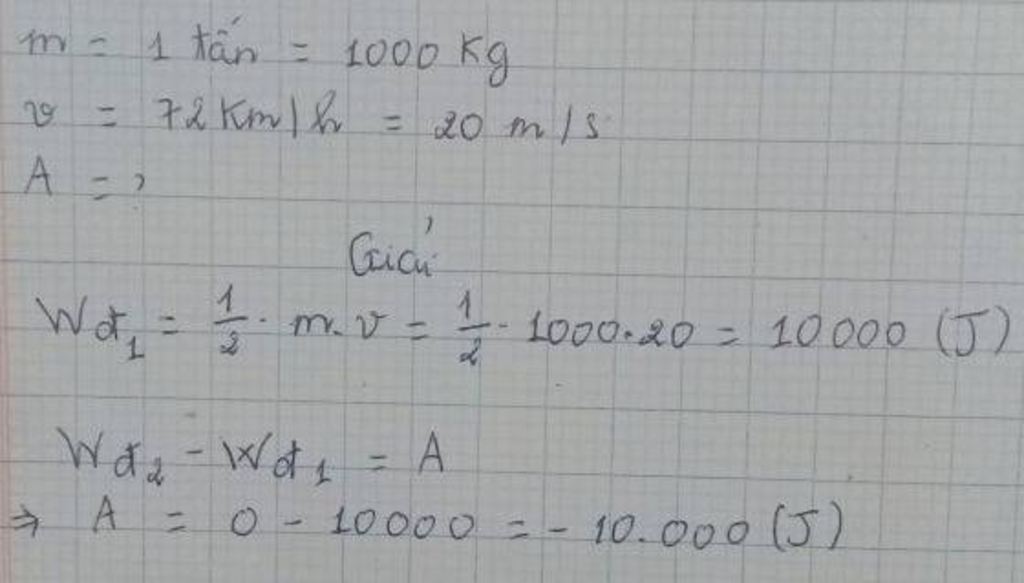 m = 1 tấn = 1000 Kg
v = 72 Km/h = 20 m/s
A = ?
Giải
Wđ₁ = 1/2 . m.v = 1/2 . 1000.20 = 10000 (J)
Wđ₂ - Wđ₁ = A
⇒ A = 0 - 10000 = - 10.000 (J)